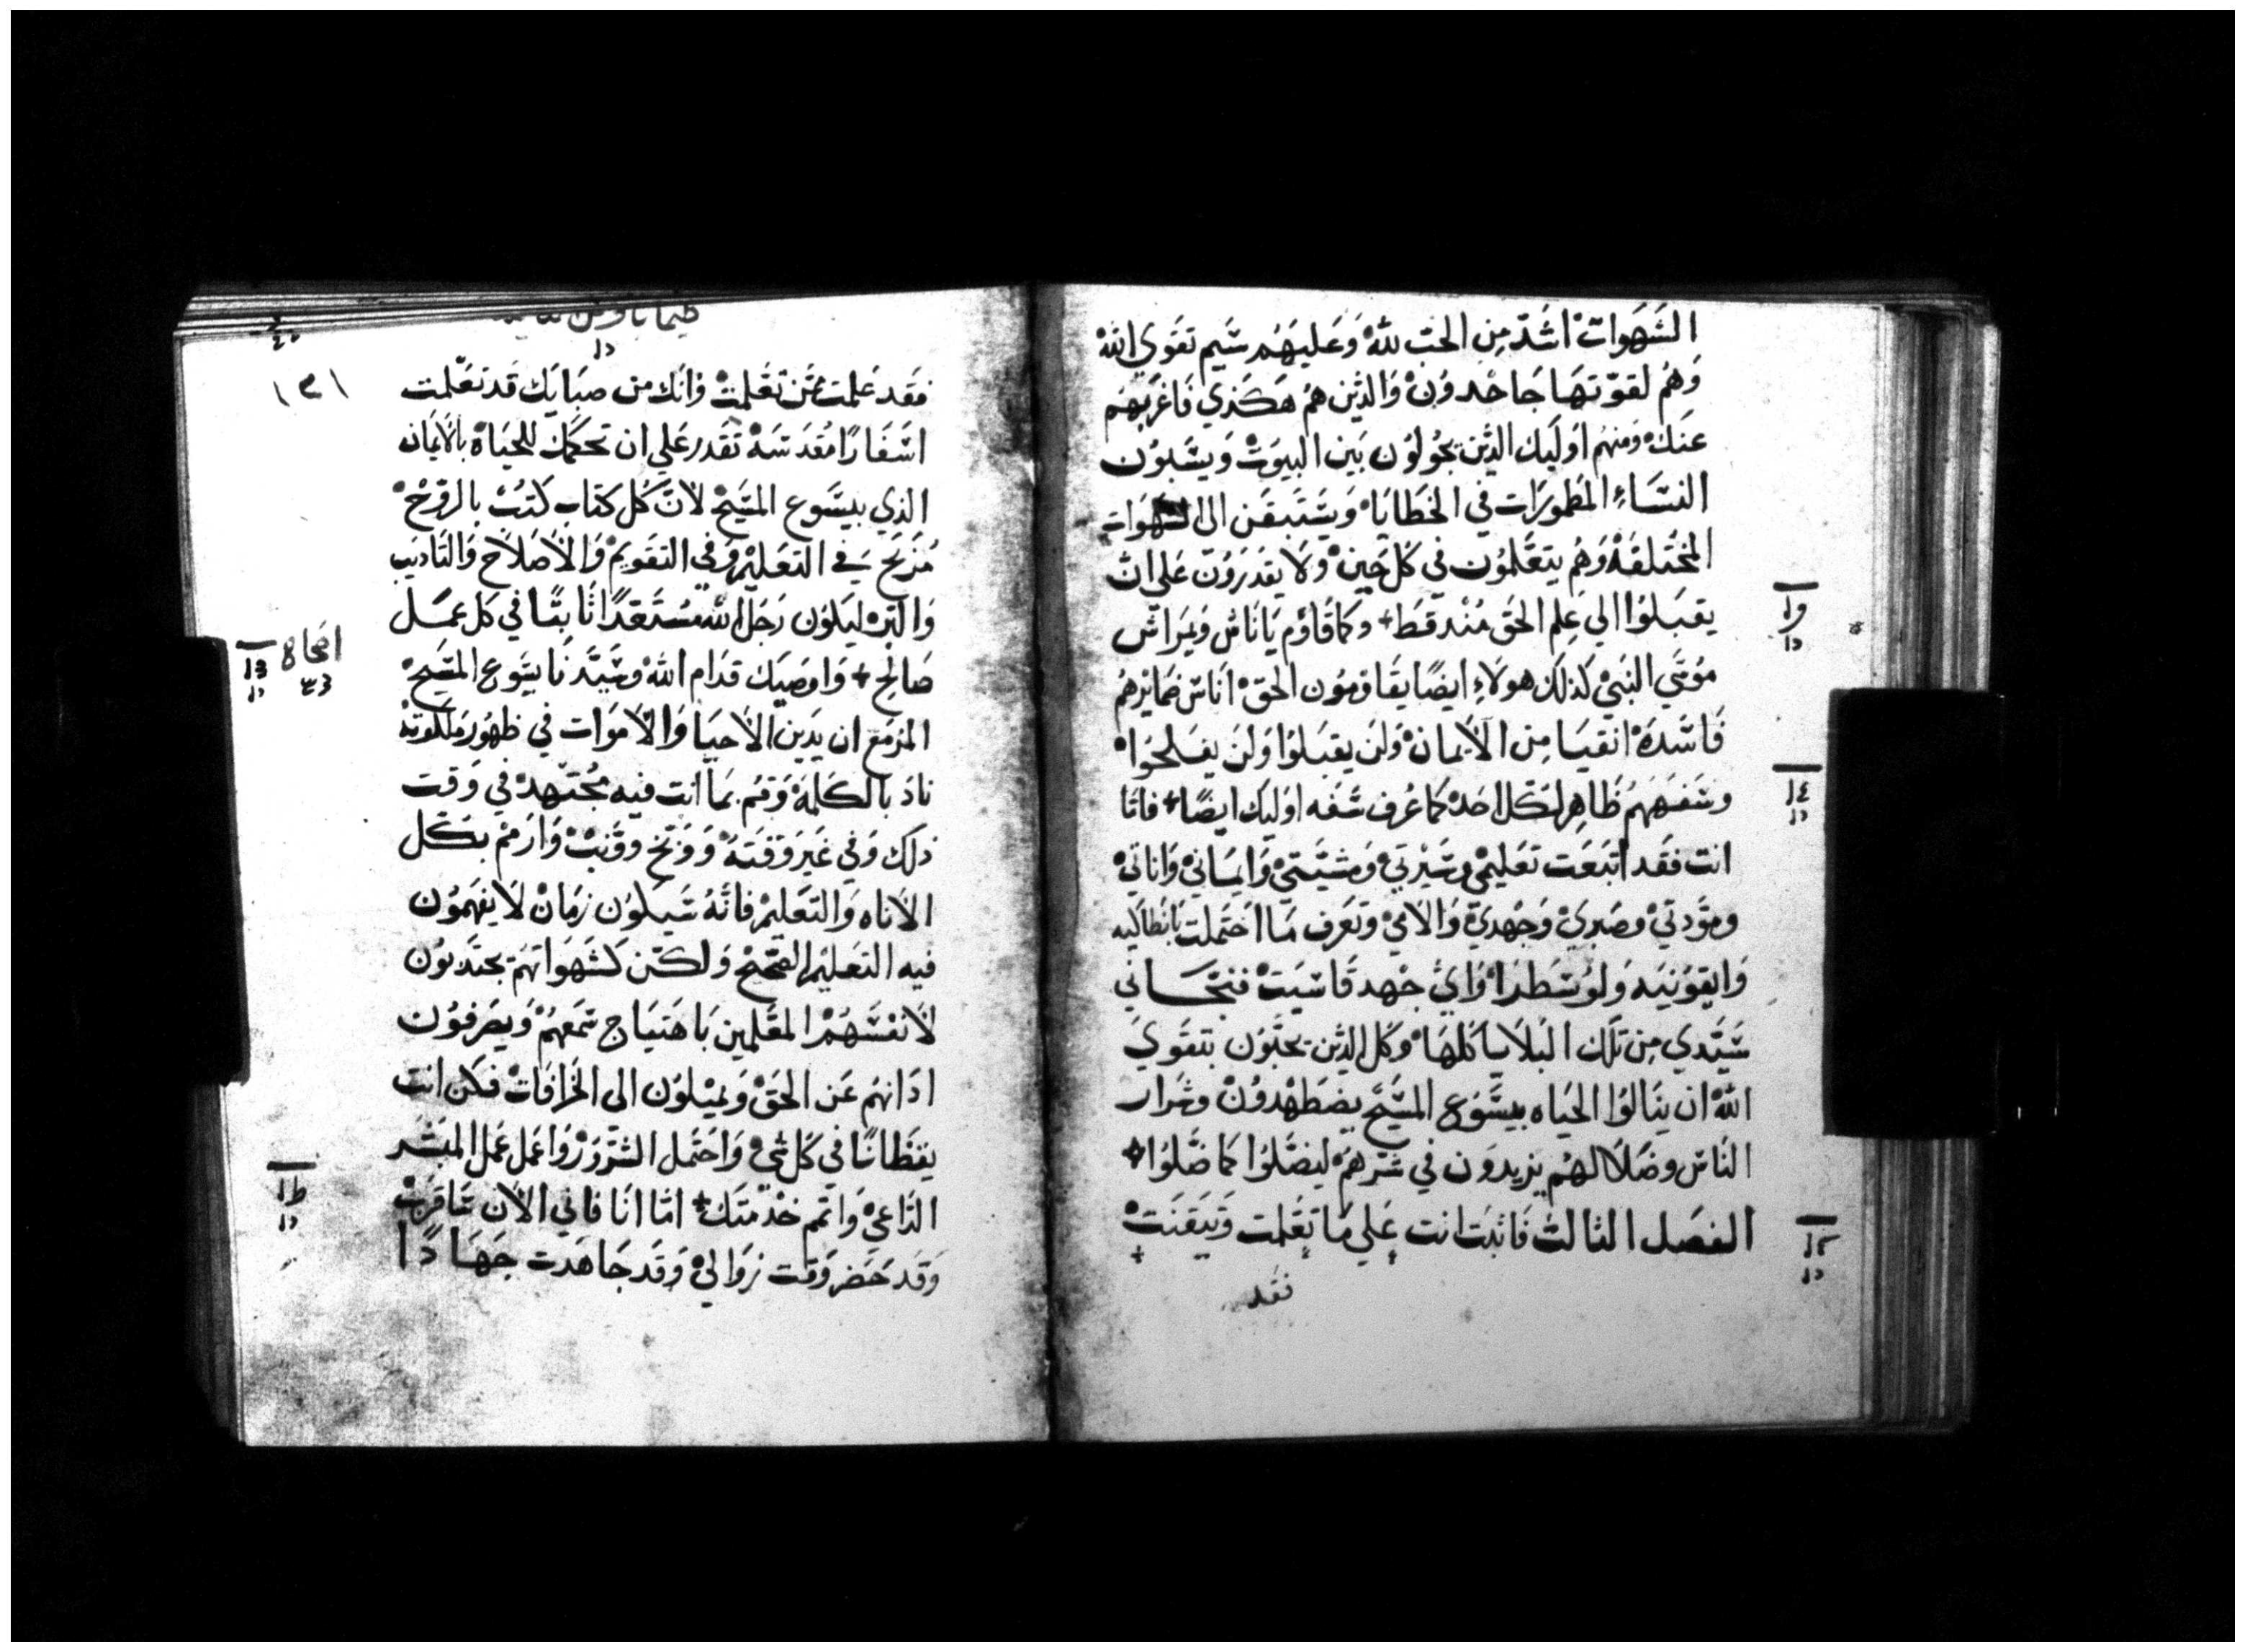 الشهوات اشد من الحب لله وعليهم شيم تقوي الله
وهم لقوتها جاحدون والذين هم هكذي فاغربهم
عنك ومنهم اوليك الذين يجولون بين البيوت ويسبون
النساء المطمورات في الخطايا ويستبقن الى الشهوات
المختلفه وهم يتعلمون في كل حين ولا يقدرون علي ان
يقبلوا الي علم الحق منذ قط + وكما قاوم يا ناس ويمراس
موسي النبي كذلك هولاء ايضا يقاومون الحق اناس ضمايرهم
فاسده انقيا من الايمان ولن يقبلوا ولن يفلحوا
وسفههم ظاهر لكل احد كما عرف سفه اوليك ايضا + فاما
انت فقد اتبعت تعليمي وسيرتي ومشيتي وايماني واناتي
ومودتي وصبري وجهدي والامي وتعرف ما احتملت بانطاكيه
وايقونيه ولوسطرا واي جهد قاسيت فنجاني
سيدي من تلك البلايا كلها وكل الذين يحبون بتقوي
الله ان ينالوا الحياه بيسوع المسيح يضطهدون وشرار
الناس وضلالهم يزيدون في شرهم ليضلوا كما ضلوا +
الفصل الثالث فاثبت انت علي ما تعلمت وتيقنت
فقد
و
١٤
١٢
١٣١
فقد علمت ممن تعلمت وانك من صبايك قد تعلمت
اسفارا مقدسه تقدر علي ان تحكمك للحياه بالايمان
الذي بيسوع المسيح لان كل كتاب كتب بالروح
مُربح في التعليم وفي التقويم والاصلاح والتاديب
والبر ليكون رجل الله مستعدا ثابتا في كل عمل
صالح + واوصيك قدام الله وسيدنا يسوع المسيح
المزمع ان يدين الاحيا والاموات في ظهور ملكوته
ناد بالكلمه وقم بما انت فيه مجتهد في وقت
ذلك وفي غير وقته ووبخ وونب وارمم بكل
الاناه والتعليم فانه سيكون زمان لا يفهمون
فيه التعليم الصحيح ولكن كشهواتهم يجتذبون
لانفسهم المعلمين باهتياج سمعهم ويصرفون
اذانهم عن الحق ويميلون الى الخرافات فكن انت
يقظانا في كل شي واحتمل الشرور واعمل عمل المبشر
الداعي واتمم خدمتك + اما انا فاني الان ساقرب
وقد حضر وقت زوالي وقد جاهدت جهادا